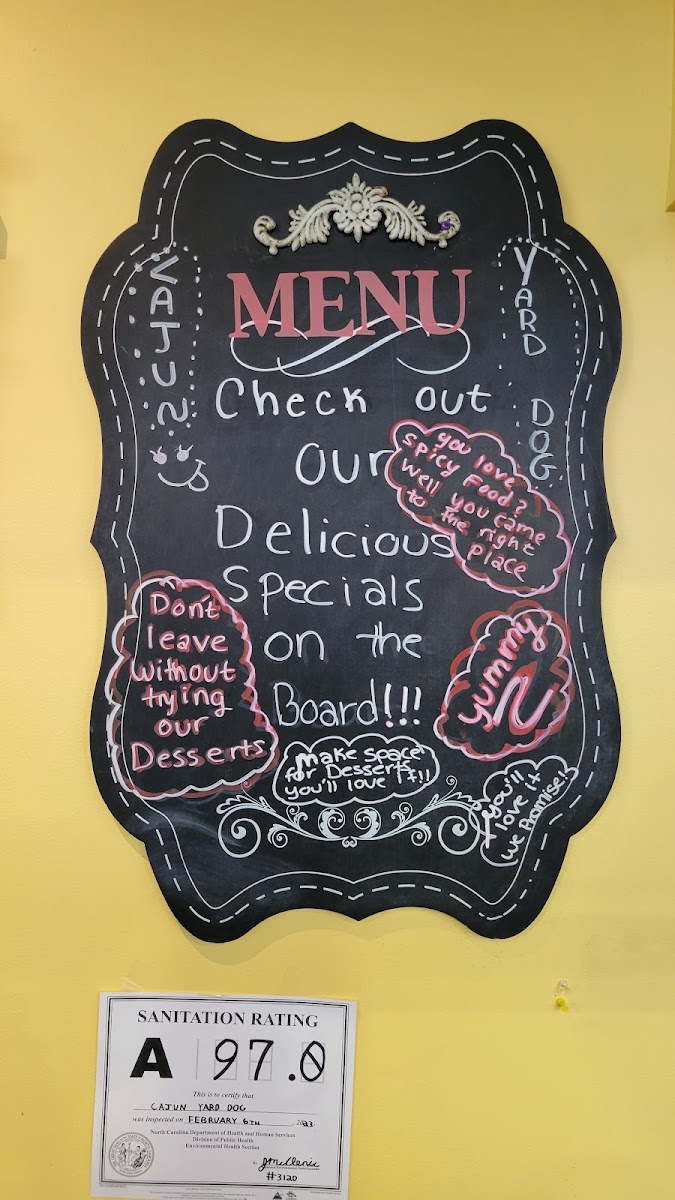 MENU
CAJUN
YARD
DOG
Check out
our
Delicious
Specials
on the
Board!!!
you love
spicy Food?
Well you came
to the right
place
Don't
leave
without
trying
our
Desserts
yummy
Make space
for Desserts
you'll love it!!
you'll
love it
we Promise!!
SANITATION RATING
A 97.0
This is to certify that
CAJUN YARD DOG
was inspected on FEBRUARY 6TH, 2023
North Carolina Department of Health and Human Services
Division of Public Health
Environmental Health Section
#3120